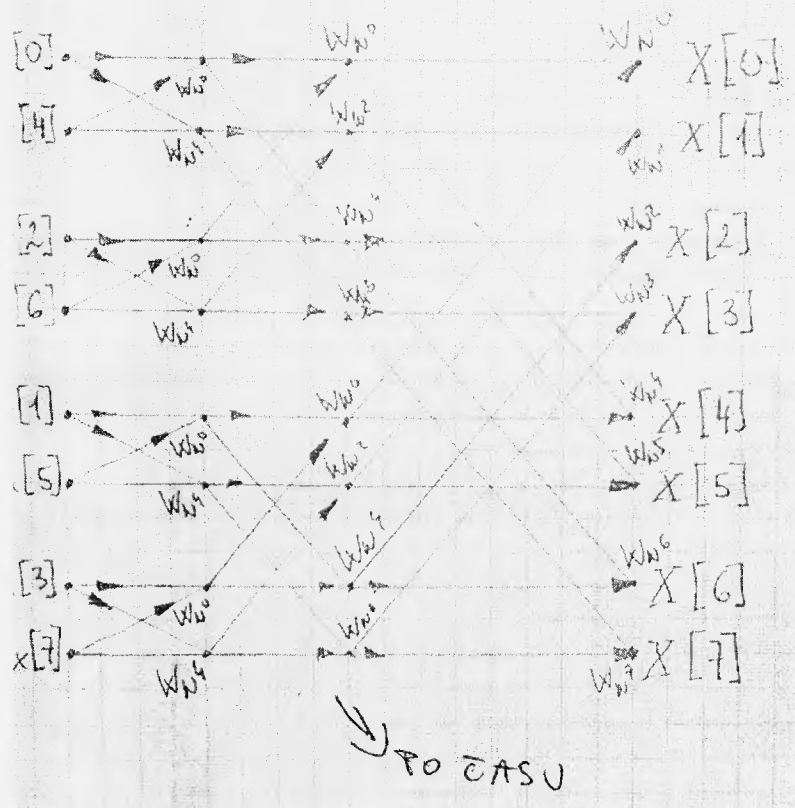 [0] W_N^0 W_N^0 W_N^0 X[0]
[4] W_N^4 W_N^2 W_N^1 X[1]
[2] W_N^0 W_N^4 W_N^2 X[2]
[6] W_N^4 W_N^3 X[3]
[1] W_N^0 W_N^0 W_N^4 X[4]
[5] W_N^4 W_N^2 W_N^5 X[5]
[3] W_N^0 W_N^4 W_N^6 X[6]
x[7] W_N^4 W_N^7 X[7]
PO ČASU